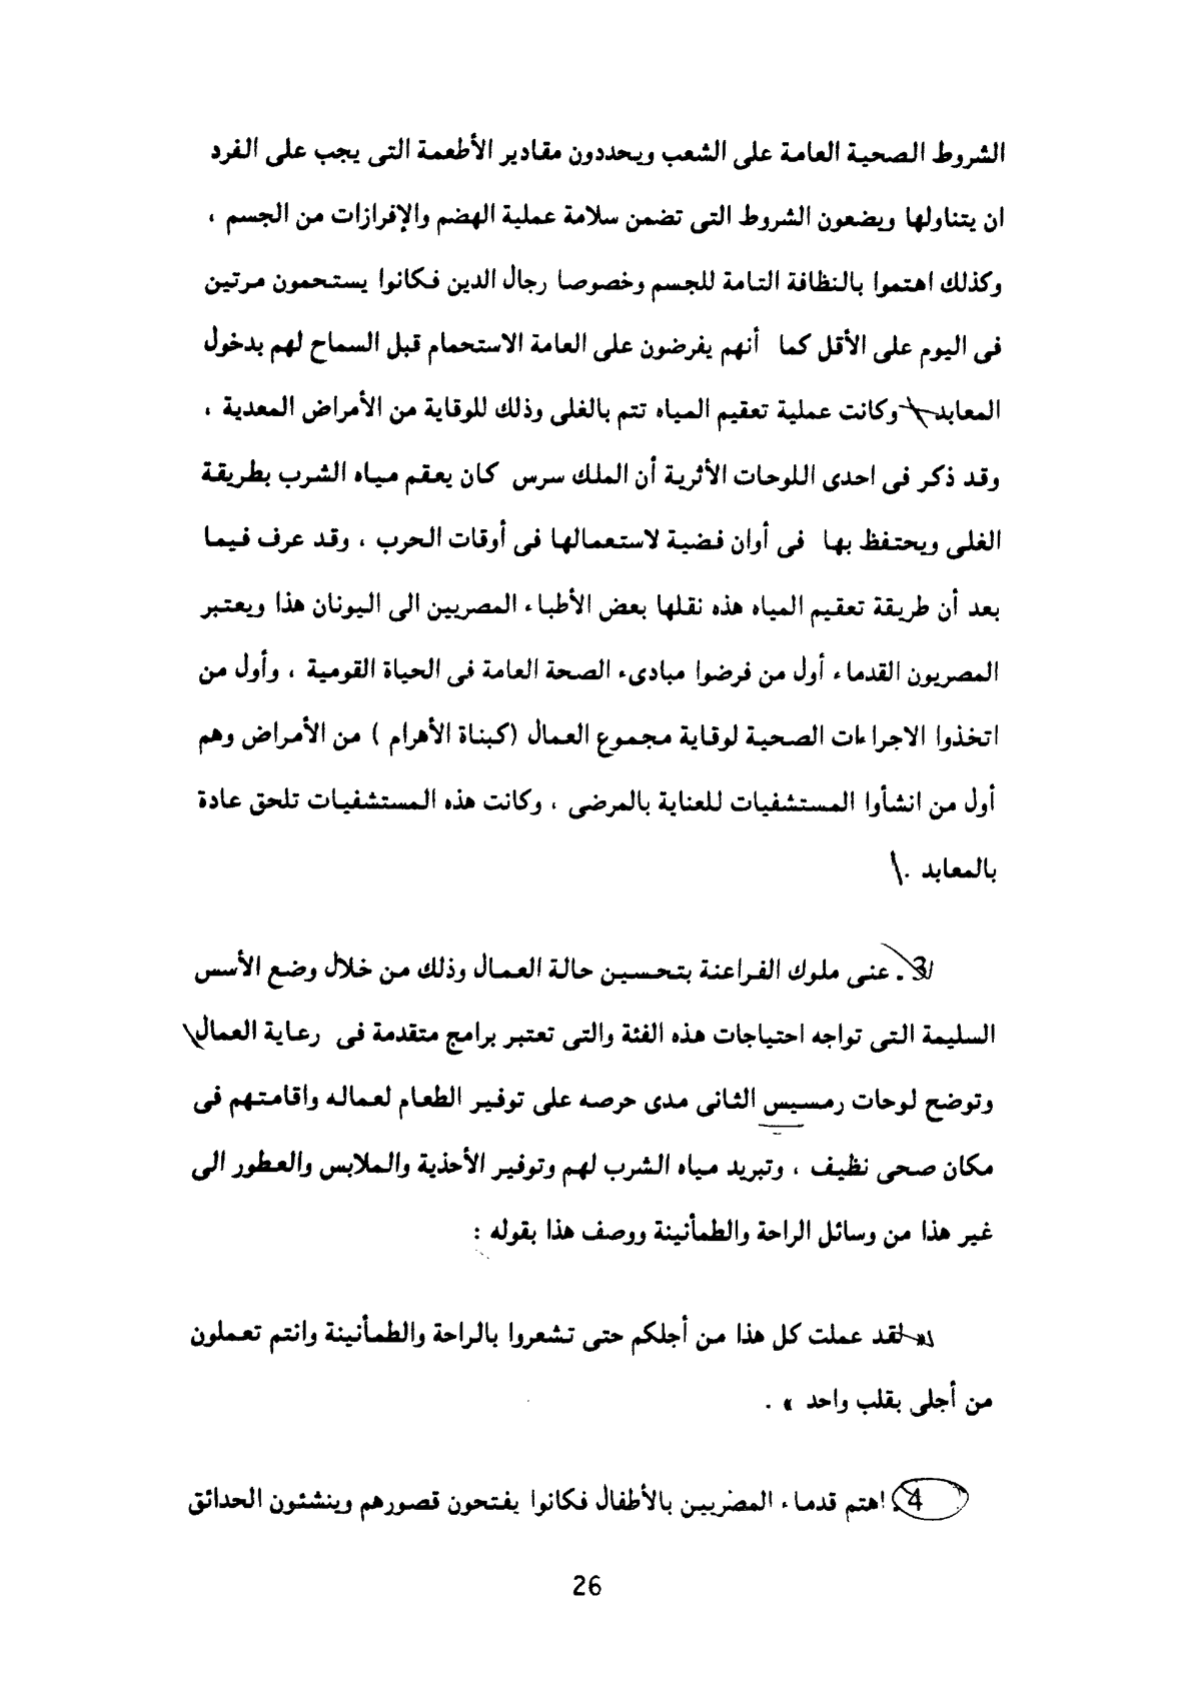 الشروط الصحية العامة على الشعب ويحددون مقادير الأطعمة التى يجب على الفرد
ان يتناولها ويضعون الشروط التى تضمن سلامة عملية الهضم والإفرازات من الجسم ،
وكذلك اهتموا بالنظافة التامة للجسم وخصوصا رجال الدين فكانوا يستحمون مرتين
فى اليوم على الأقل كما أنهم يفرضون على العامة الاستحمام قبل السماح لهم بدخول
المعابد وكانت عملية تعقيم المياه تتم بالغلى وذلك للوقاية من الأمراض المعدية ،
وقد ذكر فى احدى اللوحات الأثرية أن الملك سرس كان يعقم مياه الشرب بطريقة
الغلى ويحتفظ بها فى أوان فضية لاستعمالها فى أوقات الحرب ، وقد عرف فيما
بعد أن طريقة تعقيم المياه هذه نقلها بعض الأطباء المصريين الى اليونان هذا ويعتبر
المصريون القدماء أول من فرضوا مبادىء الصحة العامة فى الحياة القومية ، وأول من
اتخذوا الاجراءات الصحية لوقاية مجموع العمال (كبناة الأهرام ) من الأمراض وهم
أول من انشأوا المستشفيات للعناية بالمرضى ، وكانت هذه المستشفيات تلحق عادة
بالمعابد .
3. عنى ملوك الفراعنة بتحسين حالة العمال وذلك من خلال وضع الأسس
السليمة التى تواجه احتياجات هذه الفئة والتى تعتبر برامج متقدمة فى رعاية العمال
وتوضح لوحات رمسيس الثانى مدى حرصه على توفير الطعام لعماله واقامتهم فى
مكان صحى نظيف ، وتبريد مياه الشرب لهم وتوفير الأحذية والملابس والعطور الى
غير هذا من وسائل الراحة والطمأنينة ووصف هذا بقوله :
« لقد عملت كل هذا من أجلكم حتى تشعروا بالراحة والطمأنينة وانتم تعملون
من أجلى بقلب واحد » .
4. اهتم قدماء المصريين بالأطفال فكانوا يفتحون قصورهم وينشئون الحدائق
26